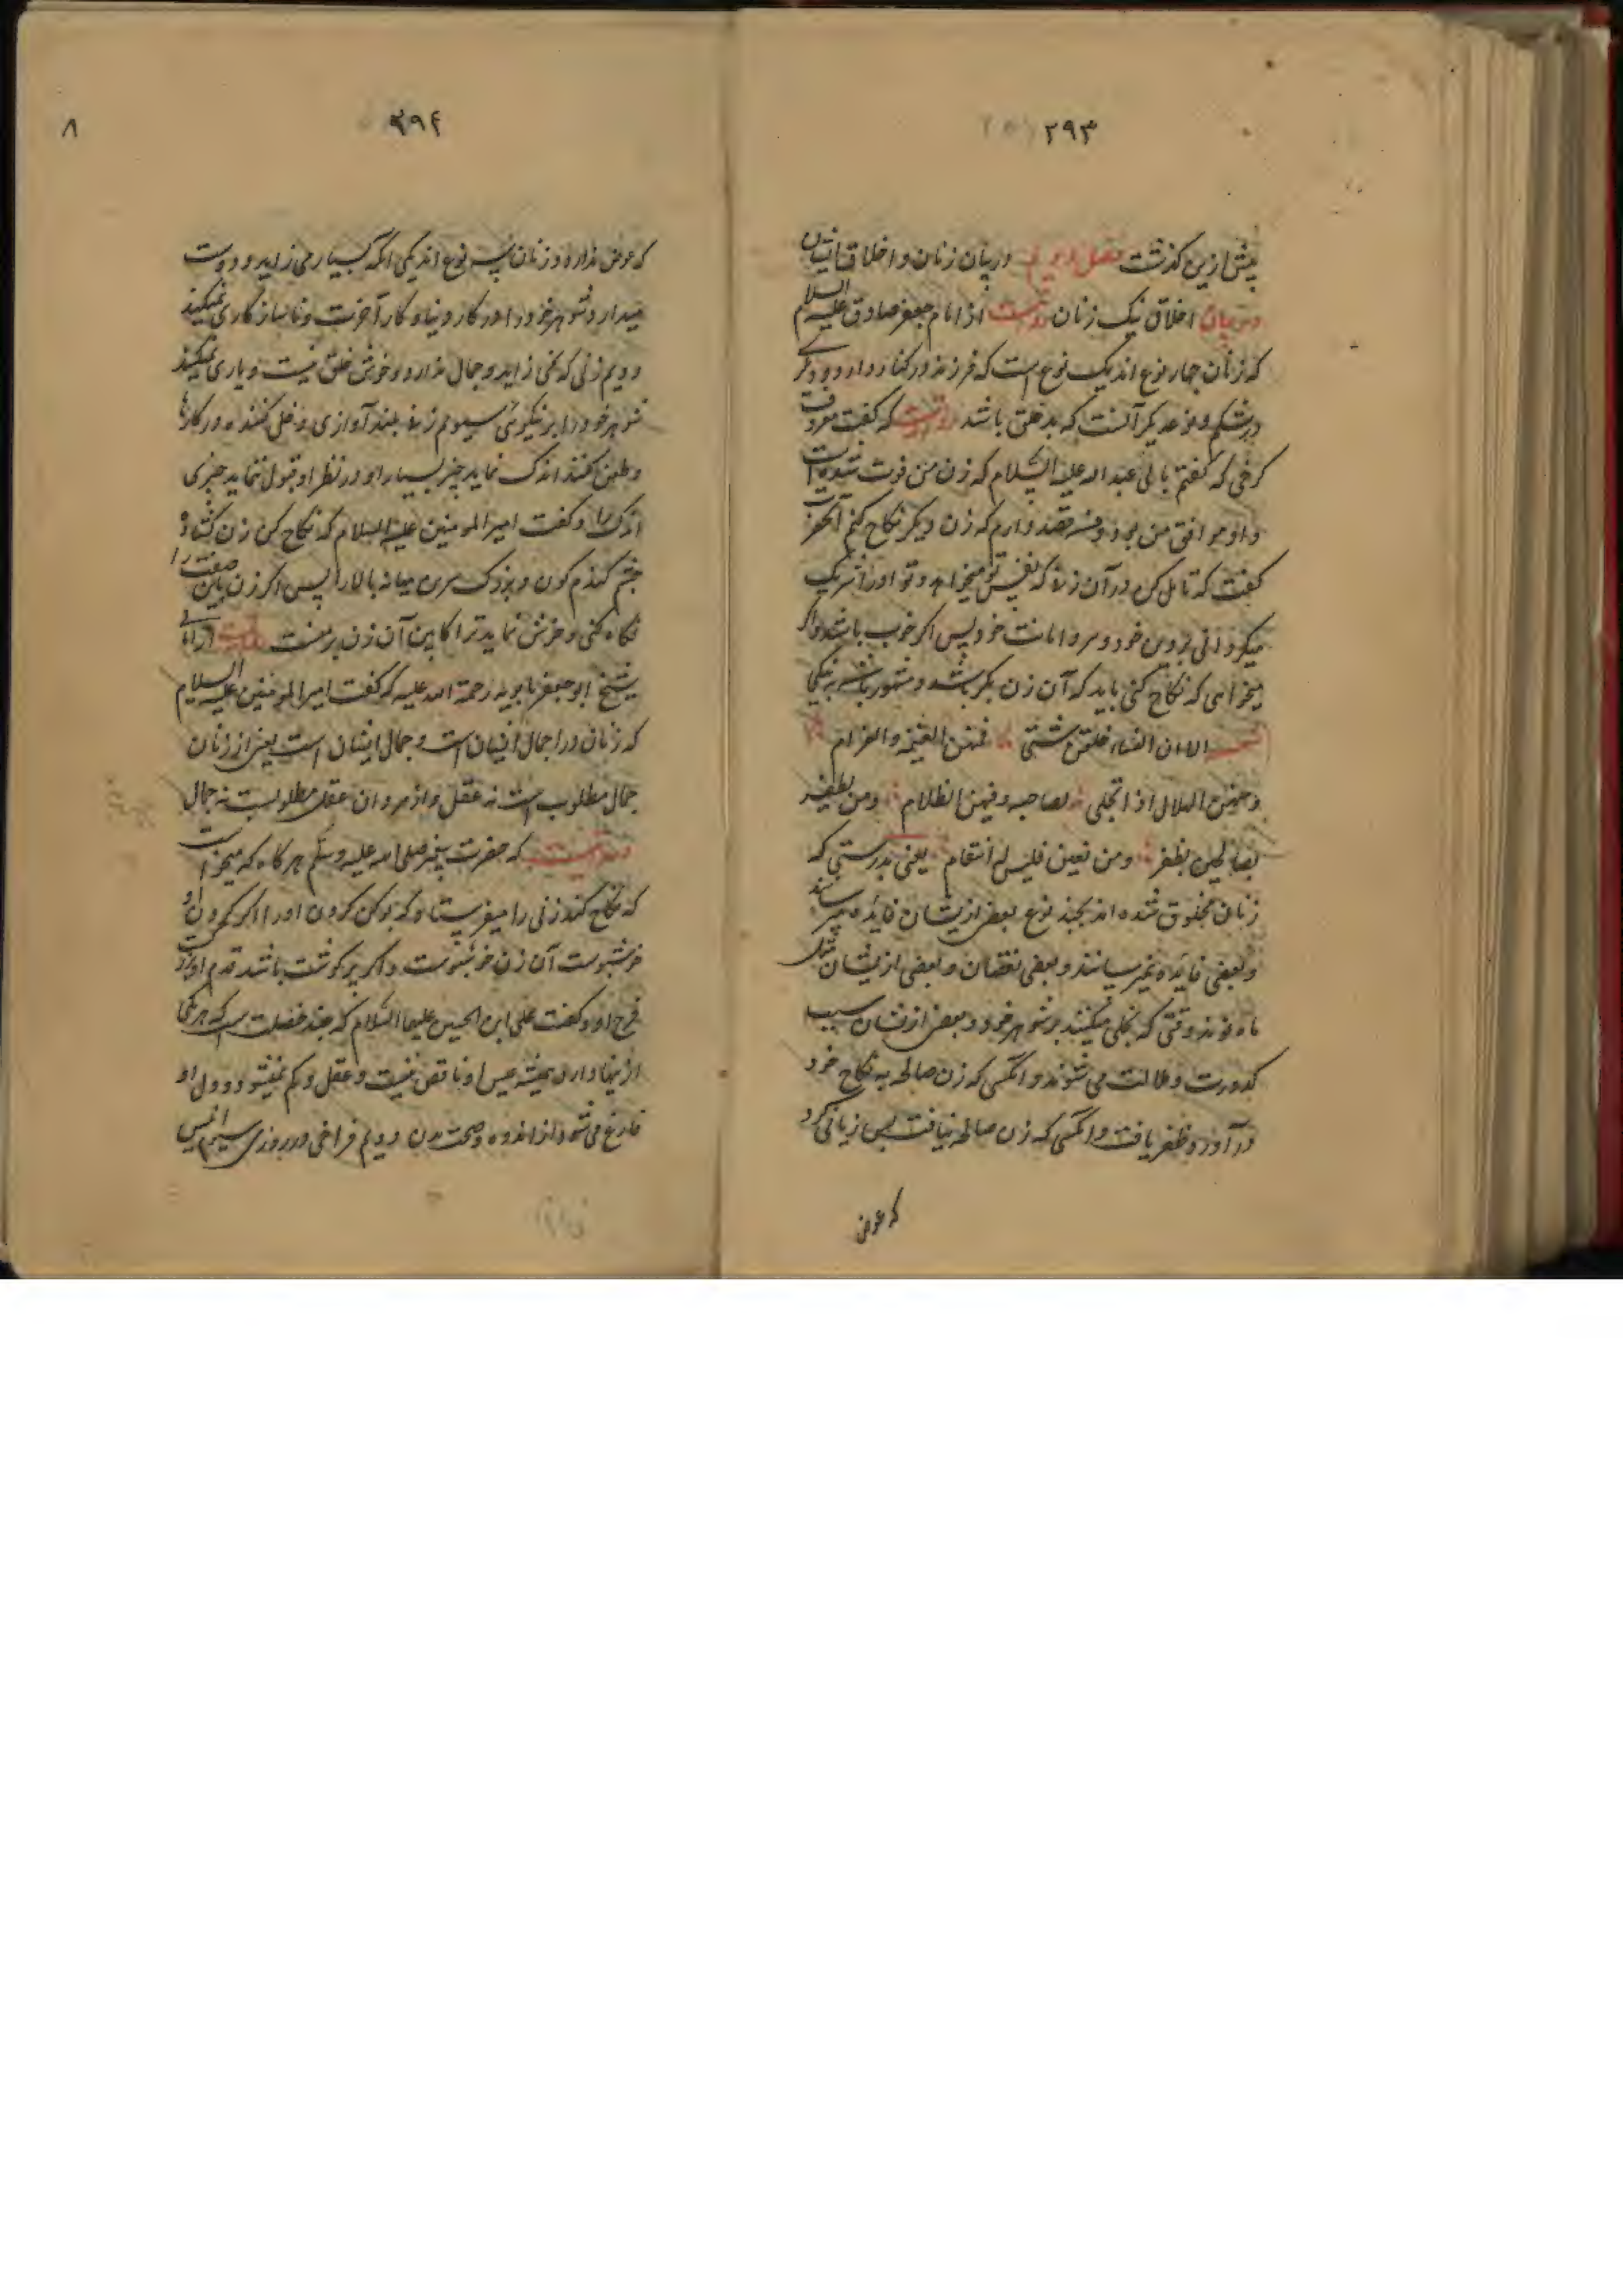 ۲۹۳
پیش ازین گذشت فصل دویم در بیان زنان و اخلاق ایشان
در بیان اخلاق نیک زنان روایت از امام جعفر صادق علیه السلام
که زنان چهار نوع اند یک نوع است که فرزند در کنار دارد و دیگرے
در شکم و نوعدیکر آنست که بد خلق باشد روایت که گفت معروف
کرخی که گفتم بابی عبد الله علیه السّلام که زن من فوت شده است
و او موافق من بود و قصد دارم که زن دیکر نکاح کنم آنحضرت
گفت که تامل کن در آن زن که نفس تو میخواهد و تو اورا شریک
میکردانی بر دین خود و سر و امانت خود پس اکر خوب باشد و اکر
میخواهی که نکاح کنی باید که آن زن بکر باشد و مشهور باشد به نیکی
الا ان النساء خلقن شتی فمنهن الغنیمة والغرام
ومنهن الهلال اذا تجلی لصاحبه وفیهن الظلام ومن یظفر
بصالحهن یظفر ومن یعین فلیس له انتقام یعنی بدرستی که
زنان مخلوق شده اند بچند نوع بعض ازیشان فایده میرسانند
و بعضی فایده نمیرسانند و بعضی نقصان و بعضی ازیشان مثل
ماه نو اند وقتی که تجلی میکنند بر شوهر خود و بعض ازیشان سبب
کدورت و ظلالت می شوند و انکسی که زن صالحه به نکاح خود
در آورد و ظفر یافت و انکسی که زن صالحه نیافت پس زیانی کرد
که عوض
۲۹۴
۸
که عوض ندارد و زنان سه نوع اند یکی انکه بسیار می زاید و دوست
میدارد شوهر خود را در کار دنیا و کار آخرت و ناسازکاری نمیکند
دویم زنی که نمی زاید و جمال ندارد و خوش خلق نیست و یاری نمیکند
شوهر خود را بر نیکوئی سیوم زنی بلند آوازی و دخل کننده در کارها
و طعن کنند اندک نماید چیز بسیار او در نظر او قبول ننماید چیزی
اندک را و کفت امیر المومنین علیه السلام که نکاح کن زن کشاده
چشم کندم کون و بزرک سرین میانه بالا را پس اکر زن باین صفت را
نکاه کنی و خوش نماید ترا کابین آن زن بر منست روایت از امالی
شیخ ابو جعفر بابویه رحمة الله علیه که کفت امیر المومنین علیه السلام
که زنان در جمال ایشان است و جمال ایشان است یعنی از زنان
جمال مطلوب است نه عقل و از مردان عقل مطلوبست نه جمال
روایتست که حضرت پیغمبر صلی الله علیه وسلّم هرکاه که میخواست
که نکاح کند زنی را میفرستاد که بو کن کردن اورا اکر کردن او
خوشبوست آن زن خوشبوست و اکر پر کوشت باشد قدم او پر کوشت
فرج او و کفت علی ابن الحسین علیهما السّلام که چند خصلت است که هر یکی
ازینها دارد همیشه عیش او ناقص نیست و عقل و کم نمیشود و دل او
فارغ می شود از اندوه و صحت بدن دویم فراخی در روزی سیوم انیس